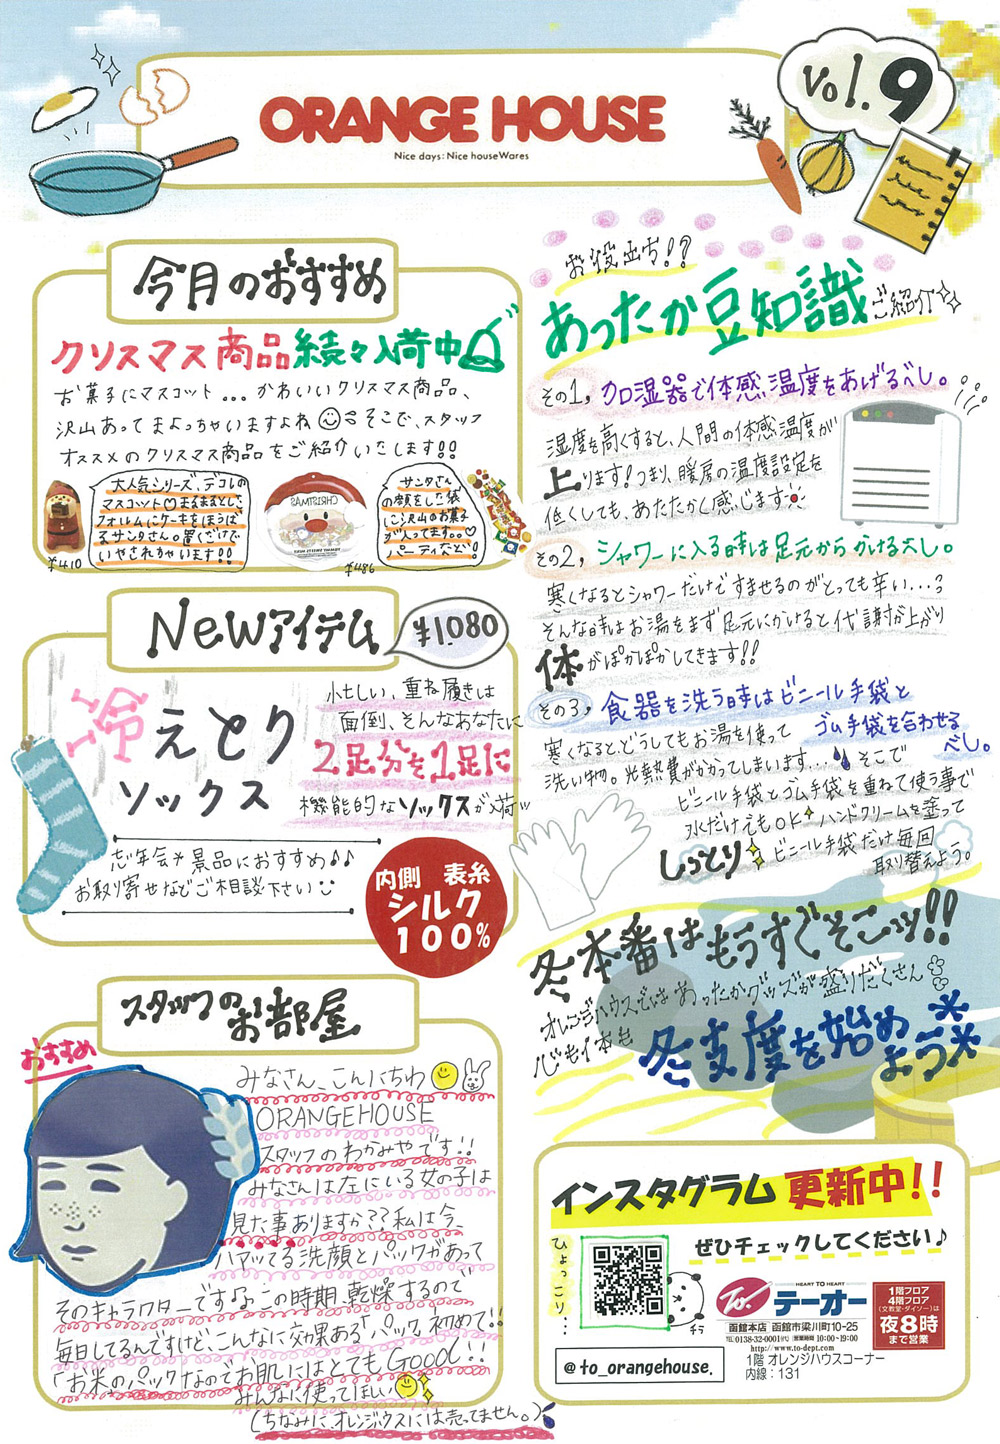 Vol.9
ORANGE HOUSE
Nice days: Nice houseWares
今月のおすすめ
クリスマス商品続々入荷中
お菓子にマスコット...かわいいクリスマス商品、
沢山あってまよっちゃいますよね そこで、スタッフ
オススメのクリスマス商品をご紹介いたします!!
大人気シリーズ、デコレの
マスコット♡まるまるとした
フォルムにケーキをほうば
るサンタさん。置くだけで
いやされちゃいます!!
¥410
CHRISTMAS
¥486
サンタさん
の顔をした袋
に沢山のお菓子
が入ってます。。♡
パーティなど!
Newアイテム
¥1080
冷えとり
ソックス
忙しい、重ね履きは
面倒、そんなあなたに
2足分を1足に
機能的なソックスが入荷!!
忘年会や景品におすすめ♪♪
お取り寄せなどご相談下さい
内側 表糸
シルク
100%
スタッフの
お部屋
おすすめ
みなさん、こんにちわ
ORANGEHOUSE
スタッフのわかみやです!!
みなさんは左にいる女の子は
見た事ありますか??私は今、
ハマってる洗顔とパックがあって
そのキャラクターです♪。この時期、乾燥するので
毎日してるんですけど、こんなに効果ある「パック」初めて!!
「お米」のパックなのでお肌にはとてもGoood!!
みんなに使ってほしい
(ちなみに、オレンジハウスには売ってません。)
お役立ち!?
あったか豆知識ご紹介
その1, 加湿器で体感温度をあげるべし。
湿度を高くすると、人間の体感温度が
上ります!つまり、暖房の温度設定を
低くしても、あたたかく感じます
その2, シャワーに入る時は足元からかけるべし。
寒くなるとシャワーだけですませるのがとっても辛い...
そんな時はお湯をまず足元にかけると代謝が上がり
体がぽかぽかしてきます!!
その3, 食器を洗う時はビニール手袋と
ゴム手袋を合わせる
べし。
寒くなるとどうしてもお湯を使って
洗い物。光熱費がかかってしまいます... そこで
ビニール手袋とゴム手袋を重ねて使う事で
水だけでもOK ハンドクリームを塗って
しっとり ビニール手袋だけ毎回
取り替えよう。
冬本番はもうすぐそこッ!!
オレンジハウスではあったかグッズが盛りだくさん
心も体も
冬支度を始め
よう
インスタグラム更新中!!
ひょっこり...
ぜひチェックしてください♪
チラ
@to_orangehouse.
HEART TO HEART
To. テーオー
函館本店 函館市梁川町10-25
TEL 0138-32-0001(代) 営業時間 10:00~19:00
http://www.to-dept.com
1階 オレンジハウスコーナー
内線：131
1階フロア
4階フロア
(文教堂・ダイソー)は
夜8時
まで営業